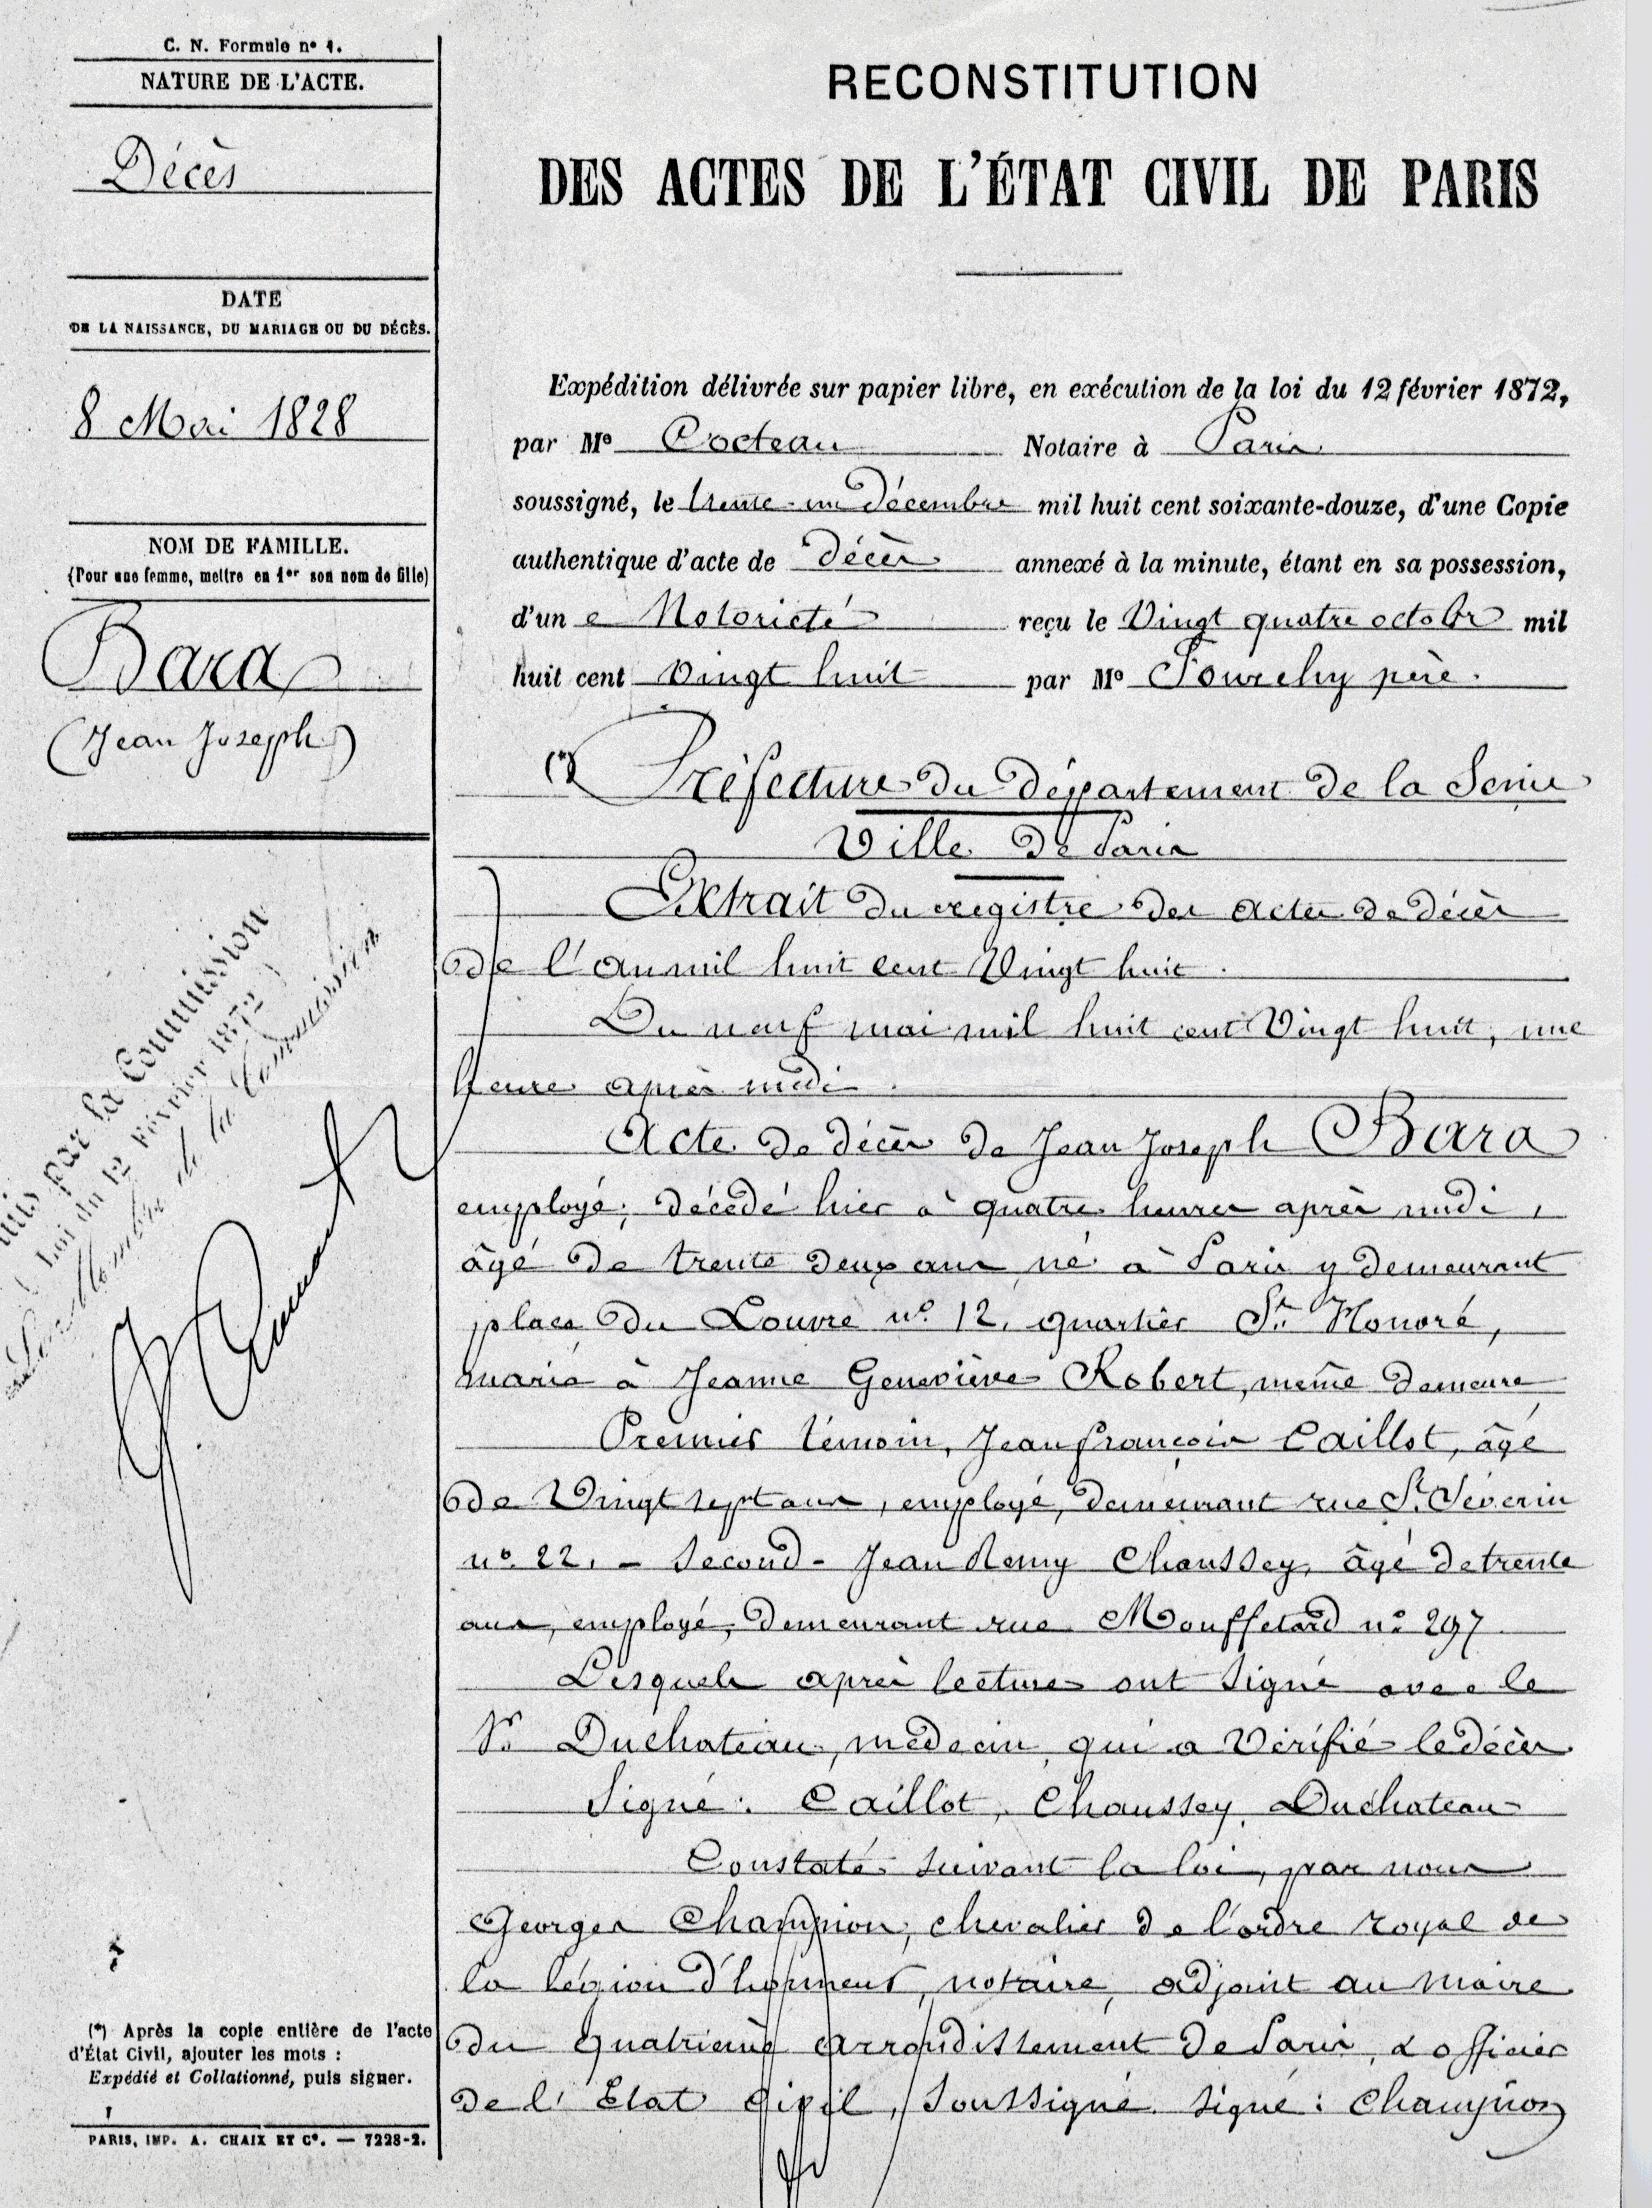 C. N. Formule nº 1.
NATURE DE L'ACTE.
Décès
DATE
DE LA NAISSANCE, DU MARIAGE OU DU DÉCÈS.
8 Mai 1828
NOM DE FAMILLE.
(Pour une femme, mettre en 1er son nom de fille)
Bara
(Jean Joseph)
par la Commission
Loi du 12 Février 1872
Le Membre de la Commission
(*) Après la copie entière de l'acte
d'État Civil, ajouter les mots :
Expédié et Collationné, puis signer.
PARIS, IMP. A. CHAIX ET Cº. — 7228-2.
RECONSTITUTION
DES ACTES DE L'ÉTAT CIVIL DE PARIS
Expédition délivrée sur papier libre, en exécution de la loi du 12 février 1872,
par Mº Cocteau Notaire à Paris
soussigné, le trente-un Décembre mil huit cent soixante-douze, d'une Copie
authentique d'acte de Décès annexé à la minute, étant en sa possession,
d'un e Notoriété reçu le Vingt quatre octobre mil
huit cent Vingt huit par Mº Fourchy père.
(*) Préfecture du Département de la Seine
Ville de Paris
Extrait du registre des actes de décès
de l'an mil huit cent Vingt huit.
Du neuf mai mil huit cent Vingt huit, une
heure après midi.
Acte de décès de Jean Joseph Bara
employé, décédé hier à quatre heures après midi,
âgé de trente deux ans, né à Paris y demeurant
place du Louvre nº 12, quartier St. Honoré,
marié à Jeanne Geneviève Robert, même demeure
Premier témoin, Jean françois Caillot, âgé
de Vingt sept ans, employé, demeurant rue St. Séverin
nº 22. - Second - Jean Remy Chaussey, âgé de trente
ans, employé, demeurant rue Mouffetard nº 297
Lesquels après lecture ont signé avec le
Sr. Duchateau, médecin, qui a Vérifié le décès.
Signé : Caillot, Chaussey, Duchateau
Constaté suivant la loi, par nous
Georges Champion, chevalier de l'ordre royal de
la légion d'honneur, notaire, adjoint au maire
du quatrième arrondissement de Paris, & officier
de l'Etat civil, soussigné. Signé : Champion